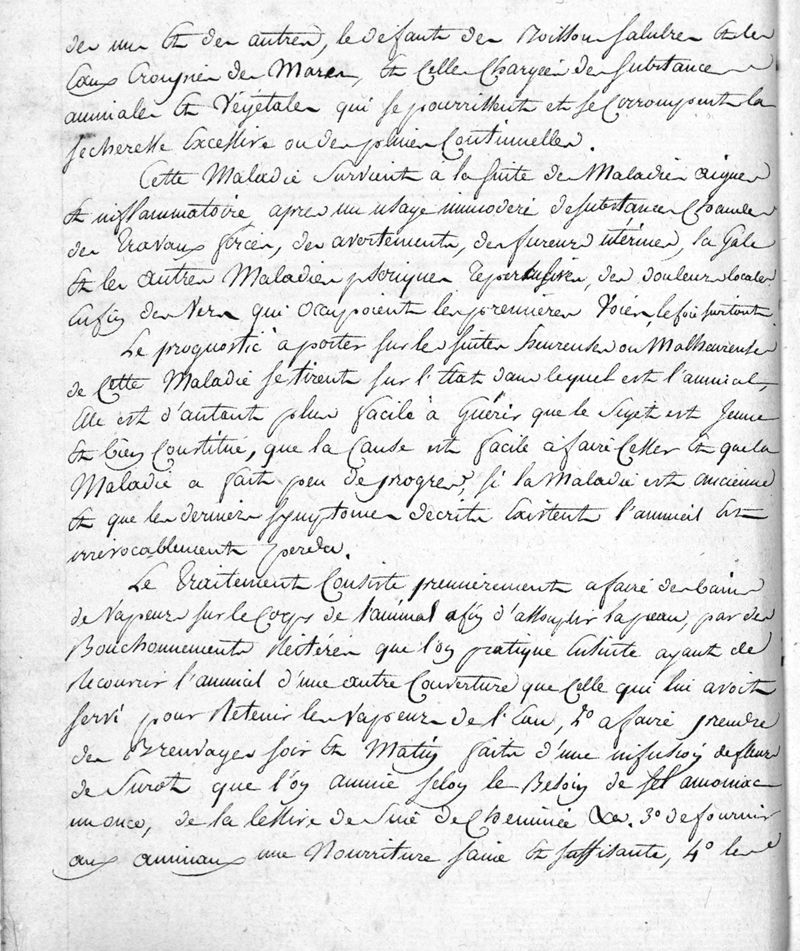 des uns et des autres, le défaut des Boissons salubres et les
Eaux Croupies des Mares, et Celles Chargées de substances
animales et Végétales qui se pourrissent et se Corrompent la
secheresse Excessive ou des pluies Continuelles.
Cette Maladie survient a la suite des Maladies aigues
et inflammatoire, apres un usage immoderé de substances Chaudes
des Travaux forcés, des avortements, des fureurs utérines, la Gale
et les autres Maladies psoriques repercusives, des douleurs locales
Enfin des Vers qui occupoient les premières Voies, le foie surtout
Le prognostic a porter sur les suites heureuses ou Malheureuses
de Cette Maladie se tirent sur l'Etat dans lequel est l'animal,
Elle est d'autant plus facile à Guérir que le Sujet est Jeune
et bien Constitué, que la Cause est facile a faire Cesser et que la
Maladie a fait peu de progres, si la Maladie est ancienne
et que les derniers symptomes decrits Existent l'animal Est
irrévocablement perdu.
Le Traitement Consiste premièrement a faire des bains
de Vapeurs sur le Corps de l'animal afin d'assouplir la peau, par des
Bouchonnements Réitérés que l'on pratique Ensuite ayant de
Recouvrir l'animal d'une autre Couverture que Celle qui lui avoit
servi pour Retenir les Vapeurs de l'Eau, 2º a faire prendre
des Breuvages soir et Matin faits d'une infusion de fleurs
de Surot que l'on anime selon le Besoin de sel amoniac
un once, de la lessive de Suie de Cheminée &a. 3º de fournir
aux animaux une Nourriture saine et suffisante, 4º les